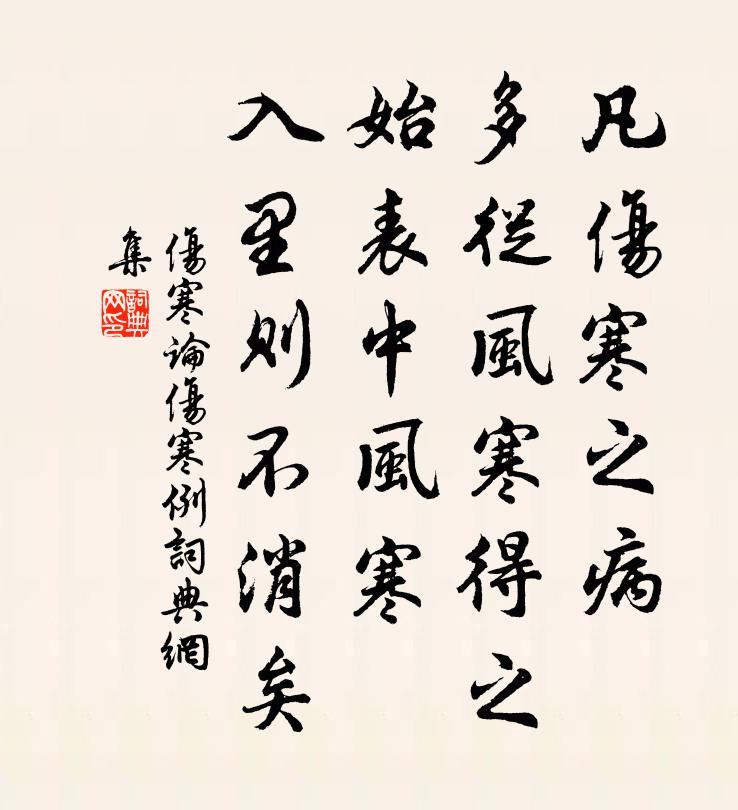 凡傷寒之病
多從風寒得之
始表中風寒
入里則不消矣
傷寒論傷寒例詞典網
集
詞典網印